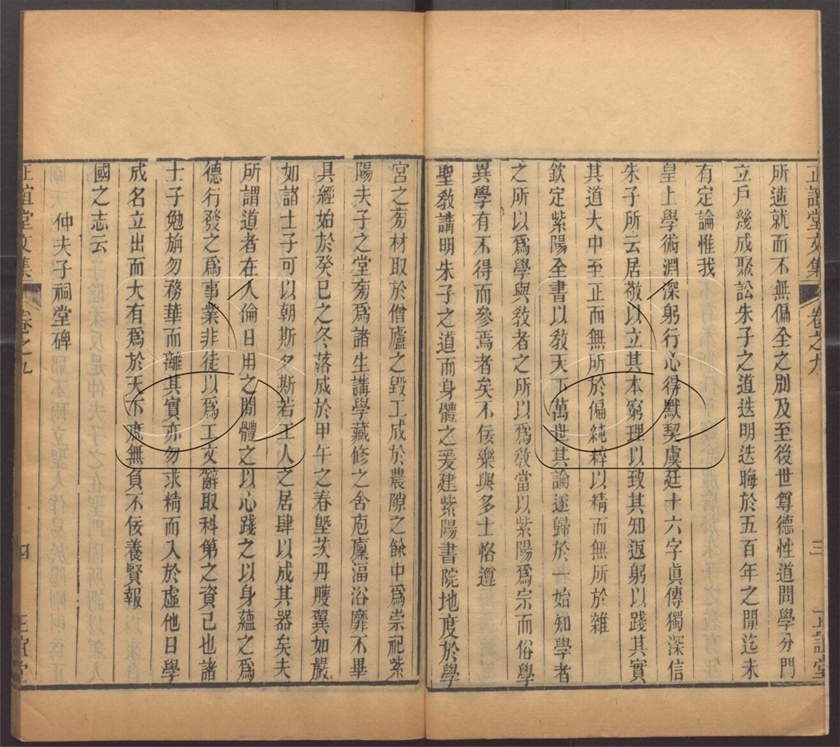 正誼堂文集
卷之九
三
正誼堂
所造就而不無偏全之別及至後世尊德性道問學分門
立戶幾成聚訟朱子之道迭明迭晦於五百年之閒迄未
有定論惟我
皇上學術淵深躬行心得默契虞廷十六字眞傳獨深信
朱子所云居敬以立其本窮理以致其知返躬以踐其實
其道大中至正而無所於偏純粹以精而無所於雜
欽定紫陽全書以敎天下萬世其論遂歸於一始知學者
之所以爲學與敎者之所以爲敎當以紫陽爲宗而俗學
異學有不得而參焉者矣不佞樂與多士恪遵
聖敎講明朱子之道而身體之爰建紫陽書院地度於學
宮之旁材取於僧廬之毀工成於農隙之餘中爲崇祀紫
陽夫子之堂旁爲諸生講學藏修之舍庖廩湢浴靡不畢
具經始於癸巳之冬落成於甲午之春塈茨丹雘翼如嚴
如諸士子可以朝斯夕斯若工人之居肆以成其器矣夫
所謂道者在人倫日用之閒體之以心踐之以身蘊之爲
德行發之爲事業非徒以爲工文辭取科第之資已也諸
士子勉旃勿務華而離其實亦勿求精而入於虛他日學
成名立出而大有爲於天下庶無負不佞養賢報
國之志云
仲夫子祠堂碑
正誼堂文集
卷之九
四
正誼堂